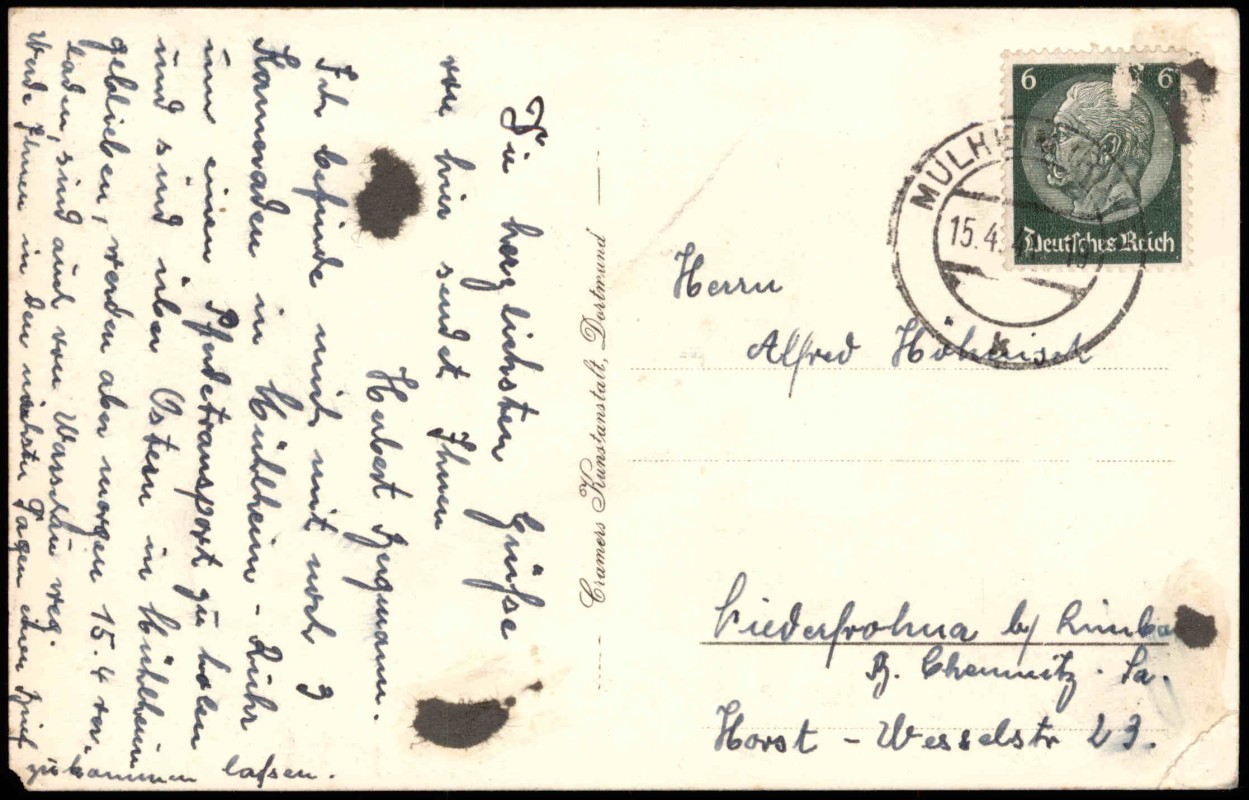 Die herzlichsten Grüße
von hier sendet Ihnen
Herbert
Ich befinde mich mit noch 3
Kameraden in Mühlheim - Ruhr
um einen Pferdetransport zu holen
und sind über Ostern in Mühlheim
geblieben, werden aber morgen 15.4 ver-
laden, sind auch von Warschau weg.
Werde Ihnen in den nächsten Tagen einen Brief
zukommen laßen.
Cramers Kunstanstalt, Dortmund
6 6
Deutsches Reich
MÜLHEIM
15.4.
Herrn
Alfred Höhnisch
Niederfrohna b/ Limba
B. Chemnitz. Sa.
Horst - Wesselstr 23.